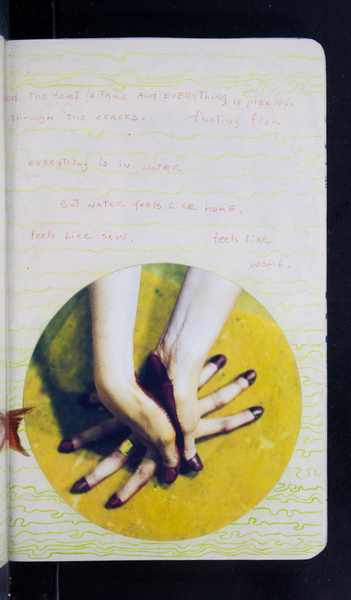 ed. THE BEAST is TAME AND EVERYTHING is precious
Through THE CRACKS. floating fish
EVERYTHING IS IN WATER.
BUT WATER feels LIKE HOME,
feels LIKE SKIN, feels LIKE
WOMB.